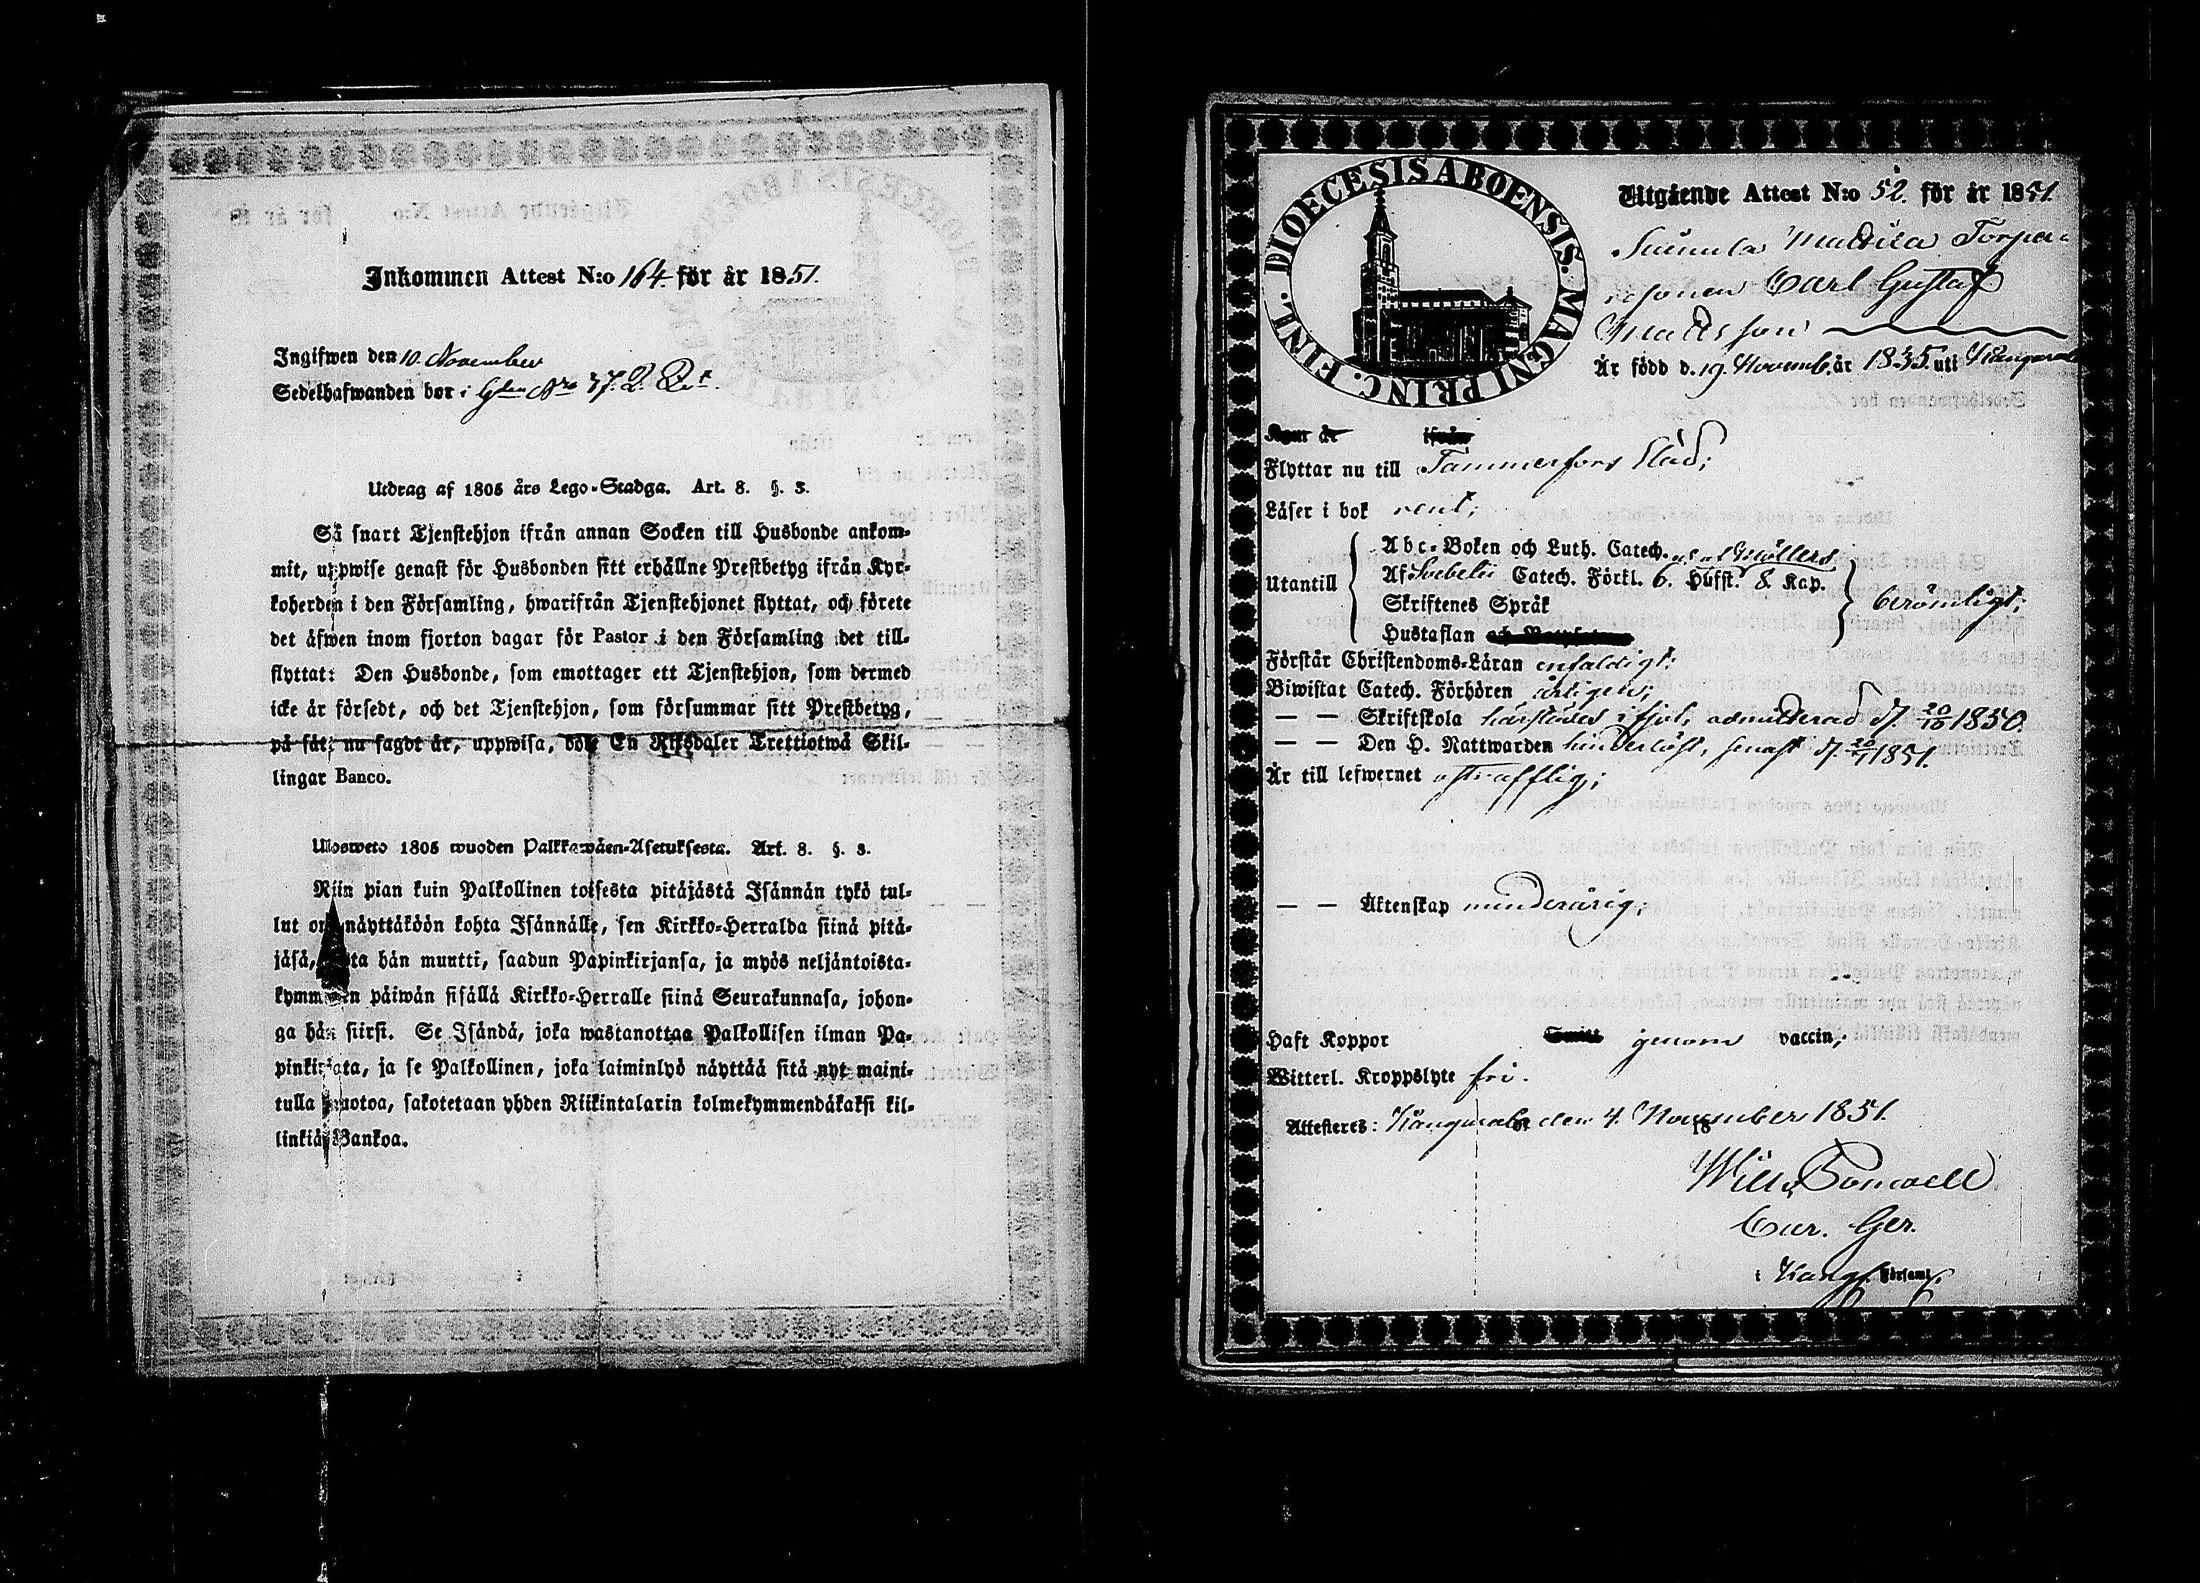 Inkommen Attest N:o 164. för år 1851.
Ingifwen den 10. November
Sedelhafwanden bor i Gden No 37. 2. Qvt.
Utdrag af 1805 års Lego-Stadga. Art. 8. §. 3.
Så snart Tjenstehjon ifrån annan Socken till Husbonde ankom-
mit, uppwise genast för Husbonden sitt erhållne Prestbetyg ifrån Kyr-
koherden i den Församling, hwarifrån Tjenstehjonet flyttat, och förete
det äfwen inom fjorton dagar för Pastor i den Församling det till-
flyttat: Den Husbonde, som emottager ett Tjenstehjon, som dermed
icke är försedt, och det Tjenstehjon, som försummar sitt Prestbetyg,
på sätt nu sagdt är, uppwisa, böte En Riksdaler Trettiotwå Skil-
lingar Banco.
Ulosweto 1805 wuoden Palkkawäen-Asetuksesta. Art. 8. §. 3.
Niin pian kuin Palkollinen toisesta pitäjästä Isännän tykö tul-
lut on, näyttäköön kohta Isännälle, sen Kirkko-Herralda siinä pitä-
jäsä, josta hän muutti, saadun Papinkirjansa, ja myös neljäntoista-
kymmenen päiwän sisällä Kirkko-Herralle siinä Seurakunnasa, johon-
ga hän siirsi. Se Isändä, joka wastanottaa Palkollisen ilman Pa-
pinkirjata, ja se Palkollinen, joka laiminlyö näyttää sitä nyt maini-
tulla muotoa, sakotetaan yhden Riikintalarin kolmekymmendäkaksi kil-
linkiä Bankoa.
DIOECESIS ABOENSIS. MAGNI PRINC. FINL.
Utgående Attest N:o 52. för år 1851.
Mattila Torpare
sonen Carl Gustaf
Mattsson
Är född d. 19. Novemb. år 1835. uti Kangasala
Kom år ifrån
Flyttar nu till Tammerfors Stad;
Läser i bok rent;
Utantill
Abc-Boken och Luth. Catech. Möllers
Af Svebelii Catech. Förkl. 6. Hufst. 8 Kap.
Skriftenes Språk
Hustaflan
berömligt;
Förstår Christendoms-Läran enfaldigt;
Biwistat Catech. Förhören årligen;
— — Skriftskola härstädes i fjol, admitterad d. 20/10 1850.
— — Den H. Nattwarden hinderlöst, senast d. 1851.
Är till lefwernet ostrafflig;
— — Äktenskap minderårig;
Haft Koppor genom vaccin;
Witterl. Kroppslyte fri.
Attesteres: Kangasala den 4. November 1851.
Wilh. Bonsdell
Cur. Ger.
i Kang. Församl.